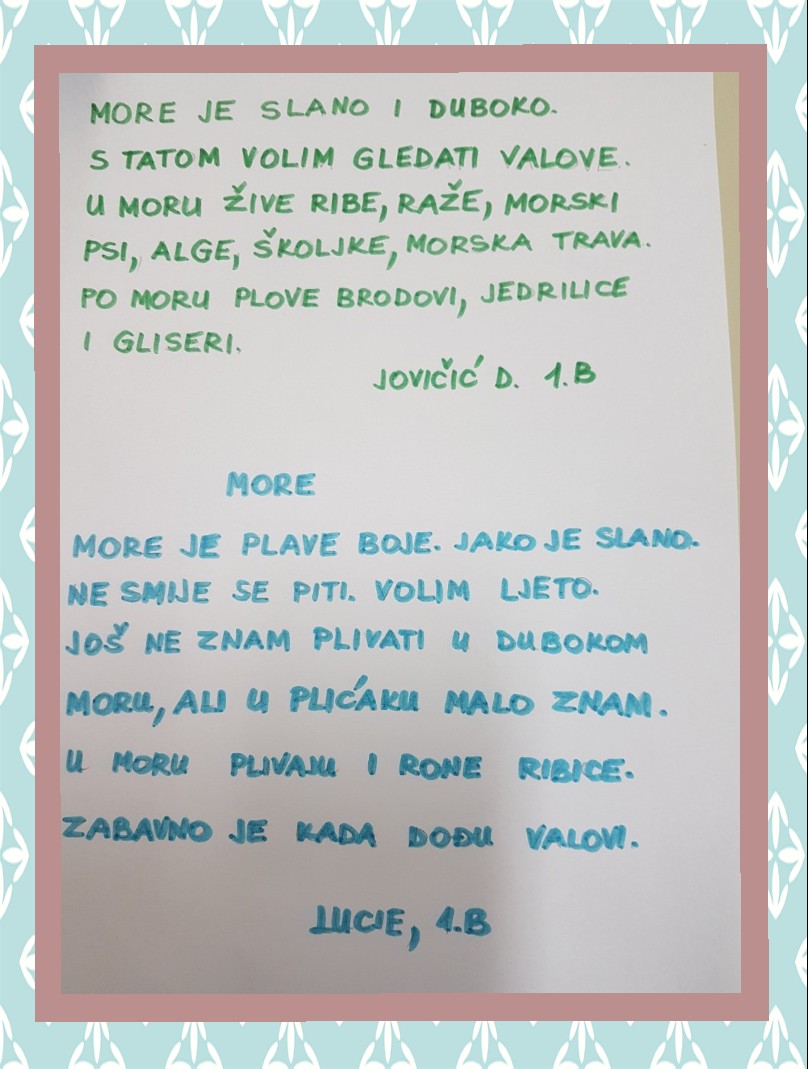 MORE JE SLANO I DUBOKO.
S TATOM VOLIM GLEDATI VALOVE.
U MORU ŽIVE RIBE, RAŽE, MORSKI
PSI, ALGE, ŠKOLJKE, MORSKA TRAVA.
PO MORU PLOVE BRODOVI, JEDRILICE
I GLISERI.
JOVIČIĆ D. 1.B
MORE
MORE JE PLAVE BOJE. JAKO JE SLANO.
NE SMIJE SE PITI. VOLIM LJETO.
JOŠ NE ZNAM PLIVATI U DUBOKOM
MORU, ALI U PLIĆAKU MALO ZNAM.
U MORU PLIVAJU I RONE RIBICE.
ZABAVNO JE KADA DOĐU VALOVI.
LUCIE, 1.B